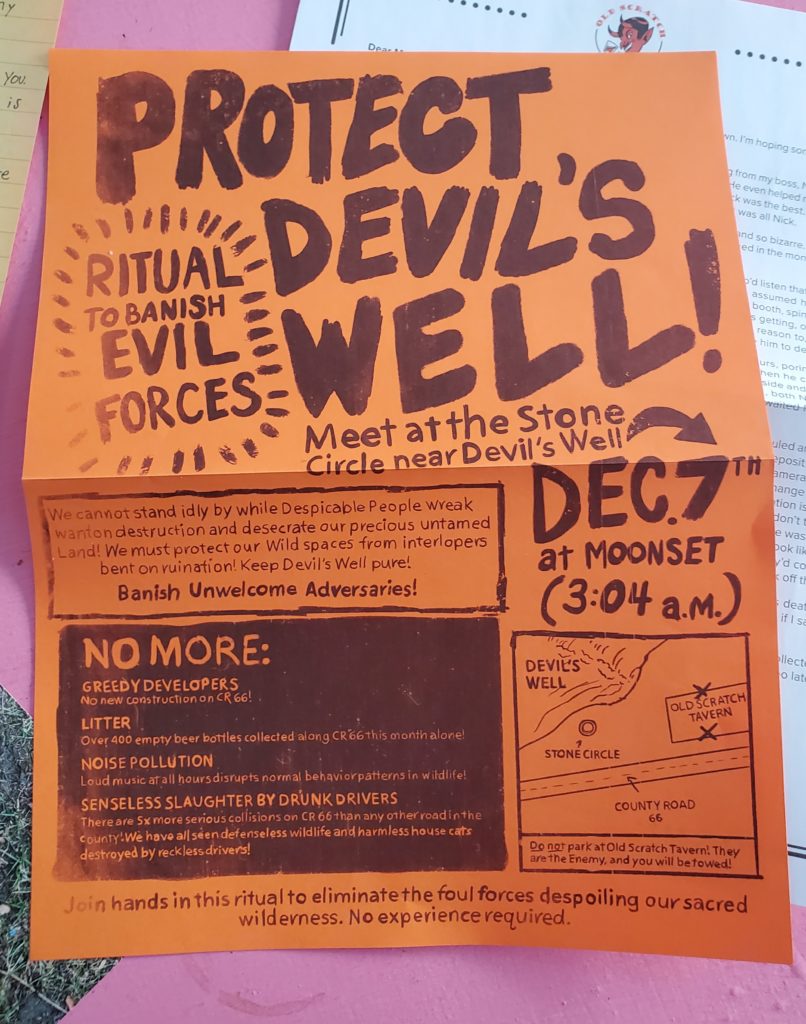 You
is
OLD SCRATCH
Dear
wn. I'm hoping
from my boss,
He even helped
was the best.
was all Nick.
and so bizarre.
in the
listen that
assumed
booth,
getting,
reason to,
him to
PROTECT
DEVIL'S
WELL!
RITUAL
TO BANISH
EVIL
FORCES
Meet at the Stone
Circle near Devil's Well
DEC. 7TH
at MOONSET
(3:04 a.m.)
We cannot stand idly by while Despicable People wreak
wanton destruction and desecrate our precious untamed
Land! We must protect our Wild spaces from interlopers
bent on ruination! Keep Devil's Well pure!
Banish Unwelcome Adversaries!
NO MORE:
GREEDY DEVELOPERS
No new construction on CR 66!
LITTER
Over 400 empty beer bottles collected along CR 66 this month alone!
NOISE POLLUTION
Loud music at all hours disrupts normal behavior patterns in wildlife!
SENSELESS SLAUGHTER BY DRUNK DRIVERS
There are 5x more serious collisions on CR 66 than any other road in the
county! We have all seen defenseless wildlife and harmless house cats
destroyed by reckless drivers!
DEVIL'S
WELL
OLD SCRATCH
TAVERN
STONE CIRCLE
COUNTY ROAD
66
Do not park at Old Scratch Tavern! They
are the Enemy, and you will be towed!
Join hands in this ritual to eliminate the foul forces despoiling our sacred
wilderness. No experience required.